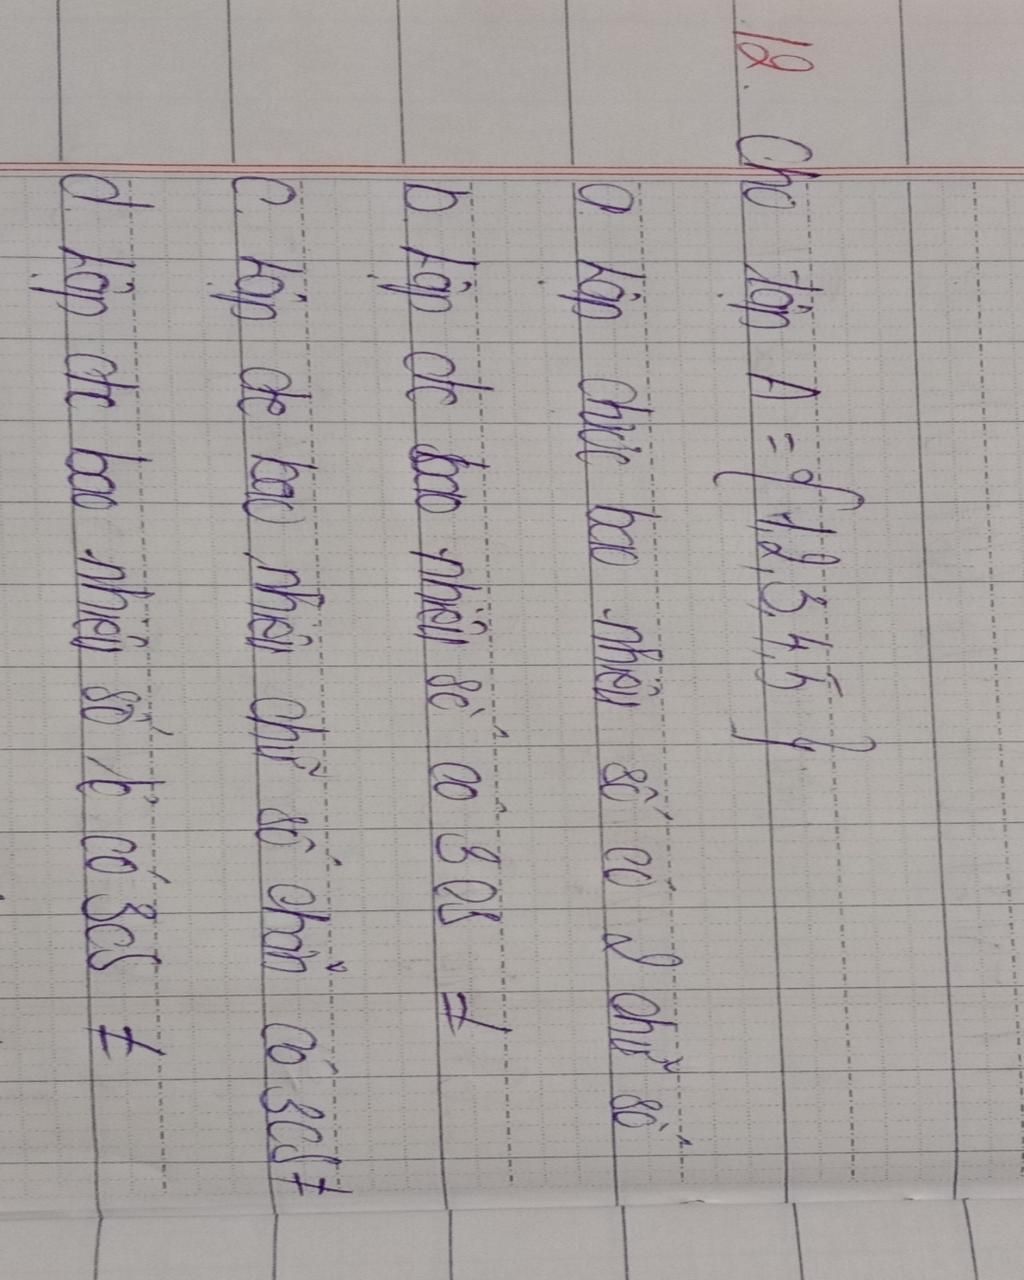 12. Cho tập A = {1,2,3,4,5}
a lập được bao nhiêu số có 2 chữ số
b lập đc bao nhiêu số có 3 cs ≠
c. lập đc bao nhiêu chữ số chẵn có 3cs ≠
d. lập đc bao nhiêu số lẻ có 3cs ≠